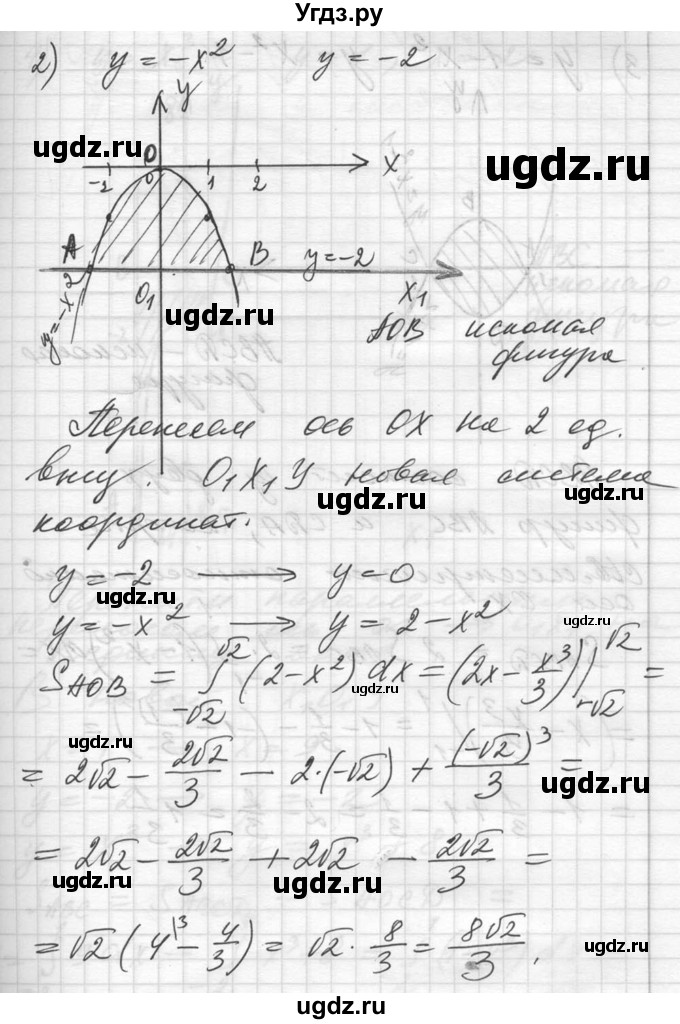 Угдз.ру
2) y = -x² y = -2
y
ugdz.ru
ugdz.ru
0 x
-2 0 1 2
A B y = -2
y = -x² O₁ x₁
ugdz.ru
AOB искомая
фигура
Перенесем ось OX на 2 ед.
вниз. O₁X₁Y новая система
ugdz.ru ugdz.ru
координат.
y = -2 ⟶ y = 0
ugdz.ru
y = -x² ⟶ y = 2 - x²
ugdz.ru
S_AOB = ∫_{-√2}^{√2} (2 - x²) dx = (2x - x³/3) |_{-√2}^{√2} =
ugdz.ru
ugdz.ru
= 2√2 - 2√2/3 - 2·(-√2) + (-√2)³/3 =
ugdz.ru
= 2√2 - 2√2/3 + 2√2 - 2√2/3 =
ugdz.ru ugdz.ru
= √2 (4\³ - 4/3) = √2 · 8/3 = 8√2/3.
ugdz.ru
ugdz.ru